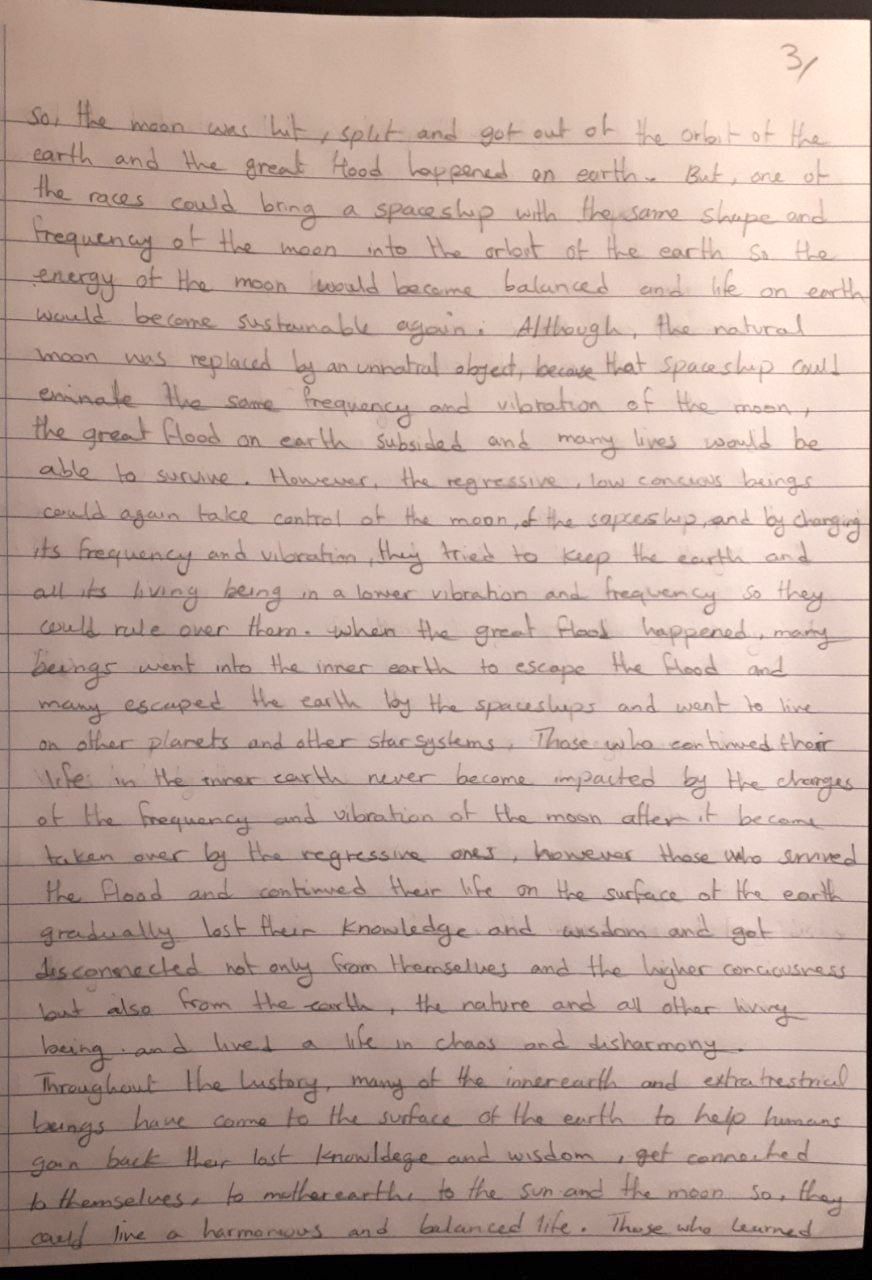 3/
So, the moon was hit, split and got out of the orbit of the
earth and the great flood happened on earth. But, one of
the races could bring a spaceship with the same shape and
frequency of the moon into the orbit of the earth so the
energy of the moon would become balanced and life on earth
would become sustainable again. Although, the natural
moon was replaced by an unnatral object, because that spaceship could
eminate the same frequency and vibration of the moon,
the great flood on earth subsided and many lives would be
able to survive. However, the regressive, low concious beings
could again take control of the moon, of the sapceship, and by changing
its frequency and vibration, they tried to keep the earth and
all its living being in a lower vibration and frequency so they
could rule over them. When the great flood happened, many
beings went into the inner earth to escape the flood and
many escaped the earth by the spaceships and went to live
on other planets and other star systems. Those who continued their
life in the inner earth never become impacted by the changes
of the frequency and vibration of the moon after it become
taken over by the regressive ones, however those who survived
the flood and continued their life on the surface of the earth
gradually lost their knowledge and wisdom and got
disconnected not only from themselves and the higher conciousness
but also from the earth, the nature and all other living
being and lived a life in chaos and disharmony.
Throughout the history, many of the inner earth and extratrestrical
beings have come to the surface of the earth to help humans
gain back their lost knowldege and wisdom, get connected
to themselves, to mother earth, to the sun and the moon so, they
could live a harmonious and balanced life. Those who learned